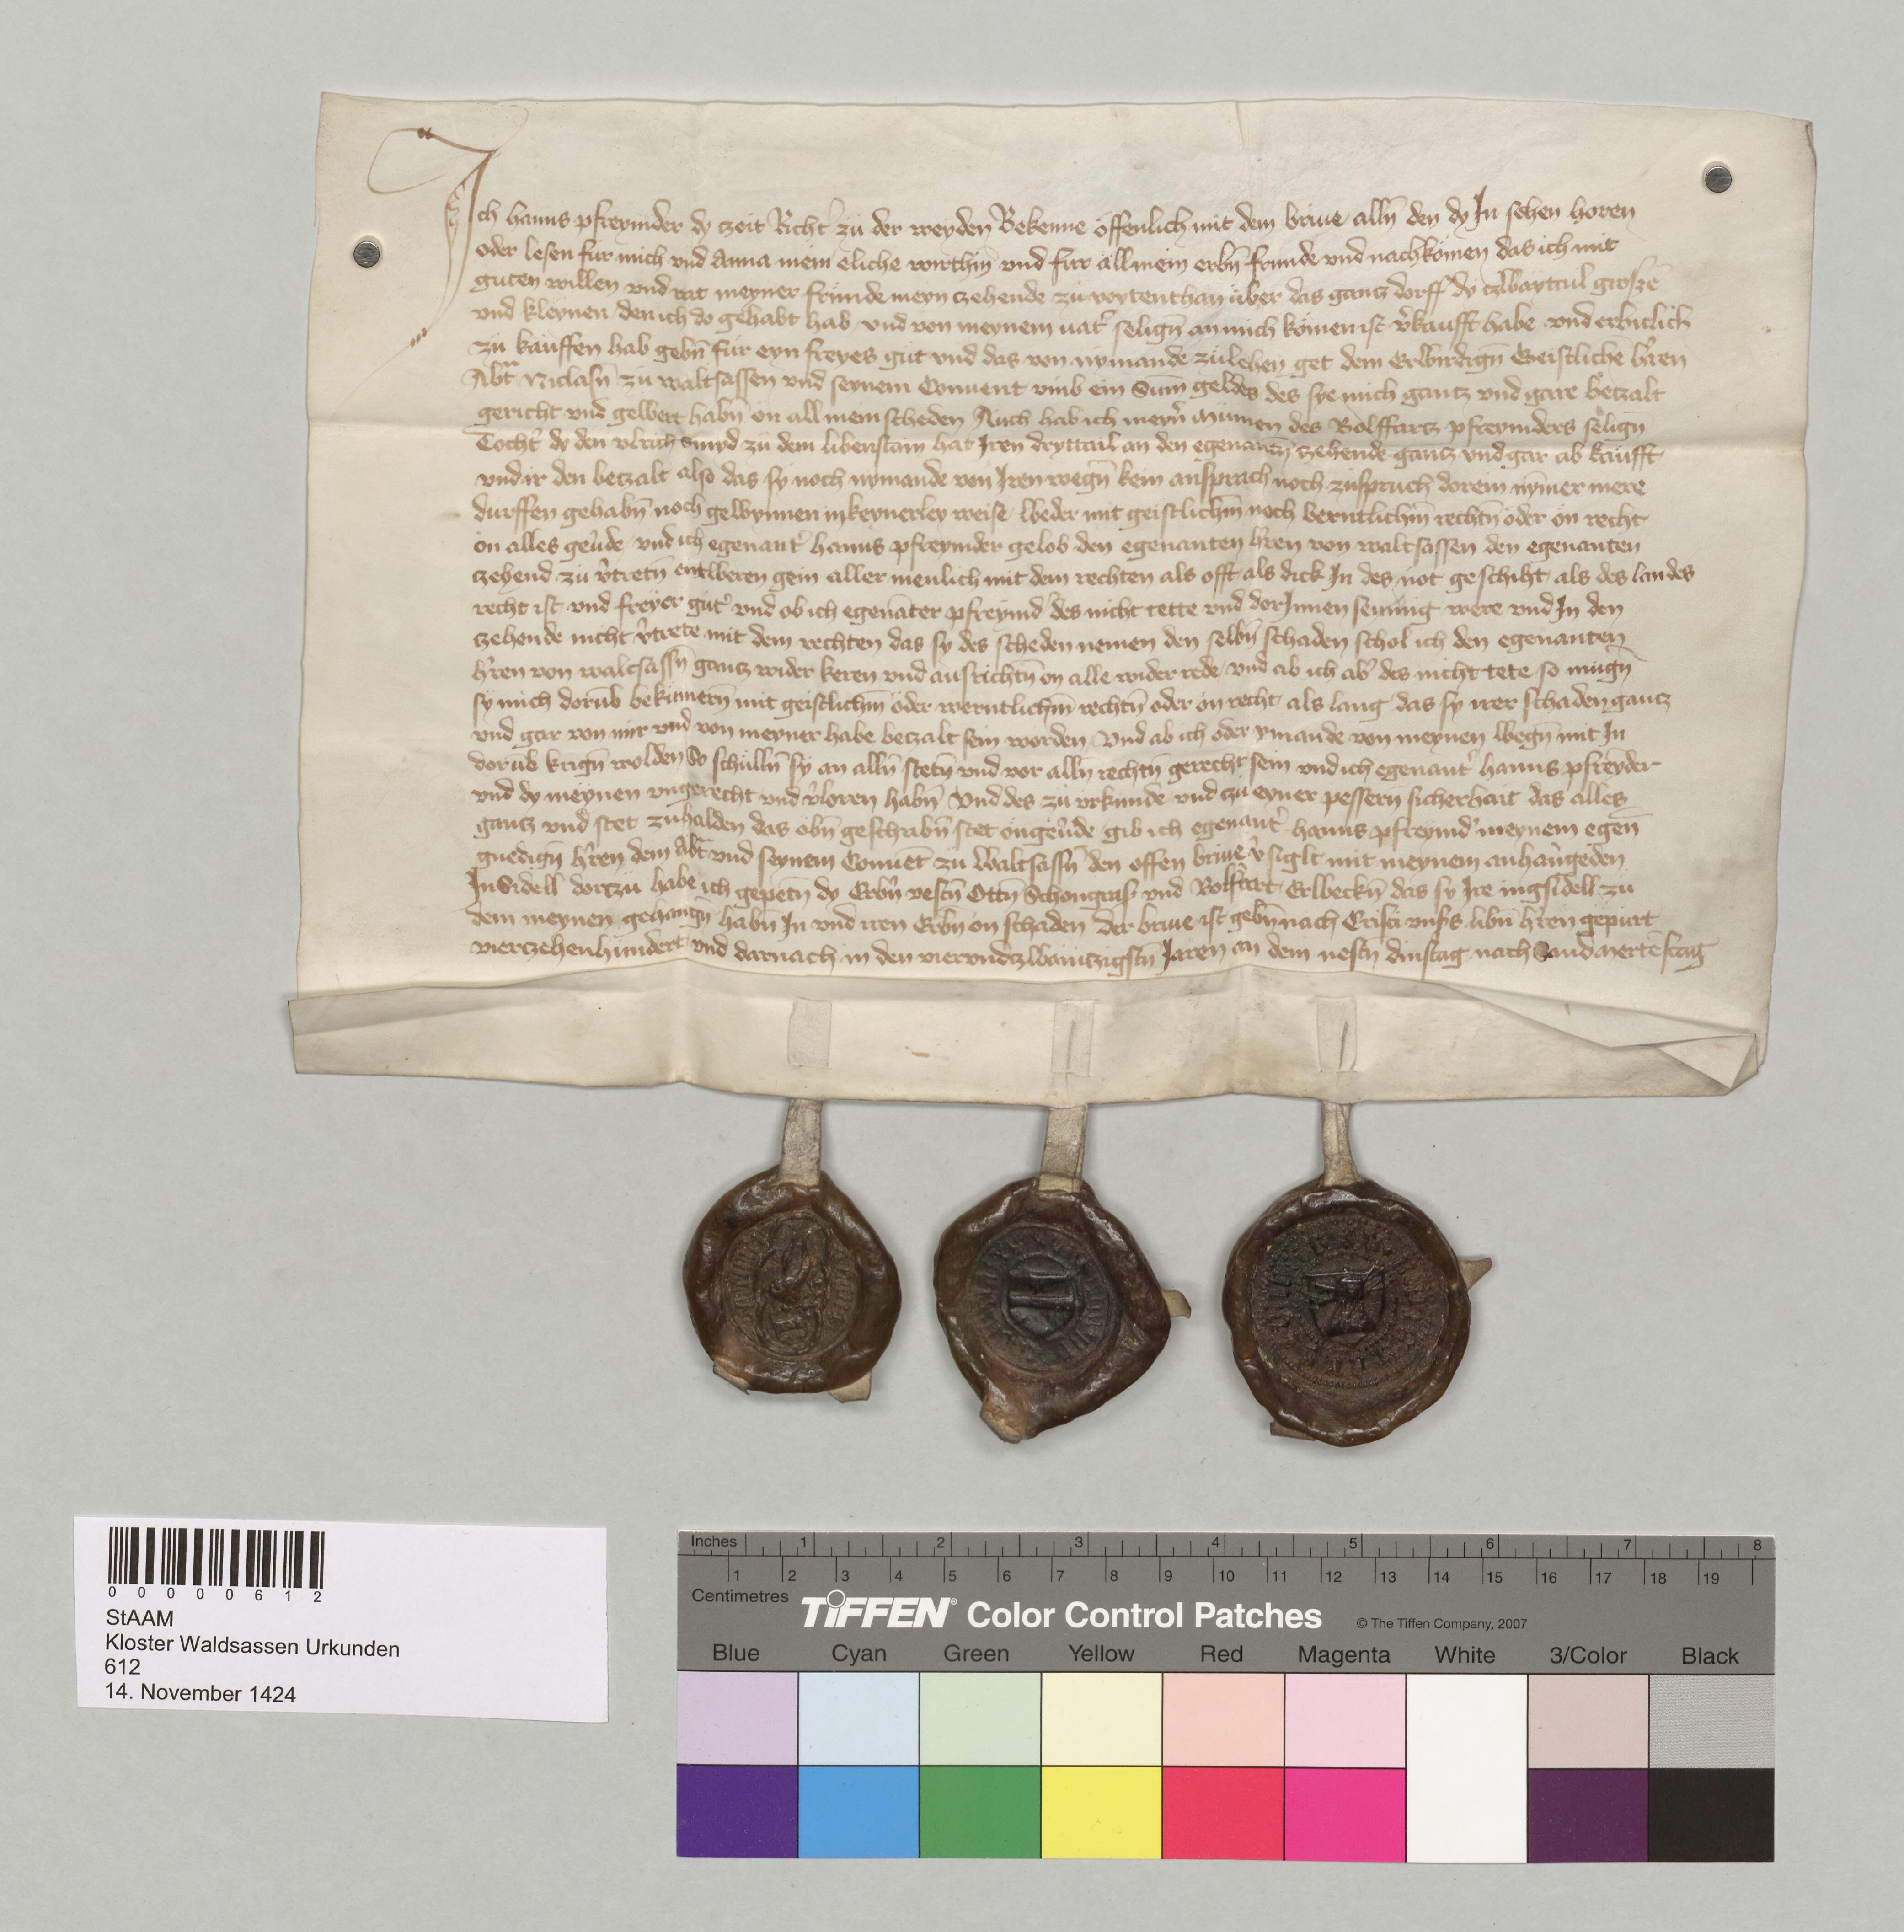 Ich hanns pfreymder dy zeit Richt' zu der weyden Bekenne offenlich mit dem briue alln den dy In sehen horen
oder lesen fur mich vnd Anna mein eliche wirthin vnd fur all mein erbn frunde vnd nachkomen das ich mit
guten willen vnd rat meyner frunde meyn zehende zu voytenthan uber das gantz dorff dy czwaytail grosze
vnd kleynen den ich do gehabt hab vnd von meynem vat' selign an mich komen ist v'kaufft habe vnd erbiclich
zu kauffen hab gebn fur eyn freyes gut vnd das von nymande zu lehen get dem Erbirdign Geistliche h'ren
Abt Niclasn zu waltsassen vnd seynem Conuent vmb ein Sum geldes des sye mich gantz vnd gare betzalt
gericht vnd gewert habn on all mein scheden Auch hab ich meyn mumen des Wolffartz pfreymders selign
Tocht' dy den vlrich smyd zu dem libenstain hat Iren dryttail an den egenantn zehende gantz vnd gar ab kaufft
vnd ir den betzalt also das sy noch nymande von Iren wegn kein ansprach noch zuspruch dorem nymer mere
durffen gehabn noch gewynnen in keynerley weise weder mit geistlichm noch werntlichm rechtn oder on recht
on alles geu'de vnd ich egenant' hanns pfreymder gelob den egenanten h'ren von waltsassen den egenanten
zehend zu v'tretn entweren gein aller menlich mit dem rechten als offt als dick In des not geschiht als des landes
recht ist vnd freyer gut' vnd ob ich egenater pfreymd' des nicht tette vnd dorInnen seumig were vnd In den
zehende nicht v'trete mit dem rechten das sy des scheden nemen den selbn schaden schol ich den egenanten
h'ren von waltsassn gantz wider keren vnd ausrichtn on alle wider rede vnd ab ich ab' des nicht tete so mugn
sy mich dorub bekumern mit geistlichm oder werntlichm rechtn oder on recht als lang das sy irer schaden gantz
vnd gar von mir vnd von meyner habe betzalt sein worden Vnd ab ich oder ymande von meynen wegn mit In
dorub krign wolden So schulln sy an alln stetn vnd vor alln rechtn gerecht sein vnd ich egenant' hanns pfreyder
vnd dy meynen vngerecht vnd v'loren habn Vnd des zu vrkunde vnd zu eyner pessern sicherhait das alles
gantz vnd stet zuhalden das obn geschrabn stet ongeu'de gib ich egenant' hanns pfreymd' meynem egen
gnedign h'ren dem Abt vnd seynem Conuet zu Waltsassn den offen briue v'siglt mit meynem anhangeden
In Sidell dortzu habe ich gepetn dy Erbn vestn Ottn Schongras vnd Wolfart Erlbeckn das sy Ire ingsidell zu
dem meynen gehangn habn In vnd iren Erbn on schaden Der briue ist gebn nach Cristi vnsrs libn h'ren gepurt
viertzehenhundert vnd darnach in den viervndtzwaintzigstn Jaren an dem nestn dinstag nach Sand Mertestag
0000612
StAAM
Kloster Waldsassen Urkunden
612
14. November 1424
Inches 1 2 3 4 5 6 7 8
1 2 3 4 5 6 7 8 9 10 11 12 13 14 15 16 17 18 19
Centimetres
TIFFEN® Color Control Patches © The Tiffen Company, 2007
Blue Cyan Green Yellow Red Magenta White 3/Color Black